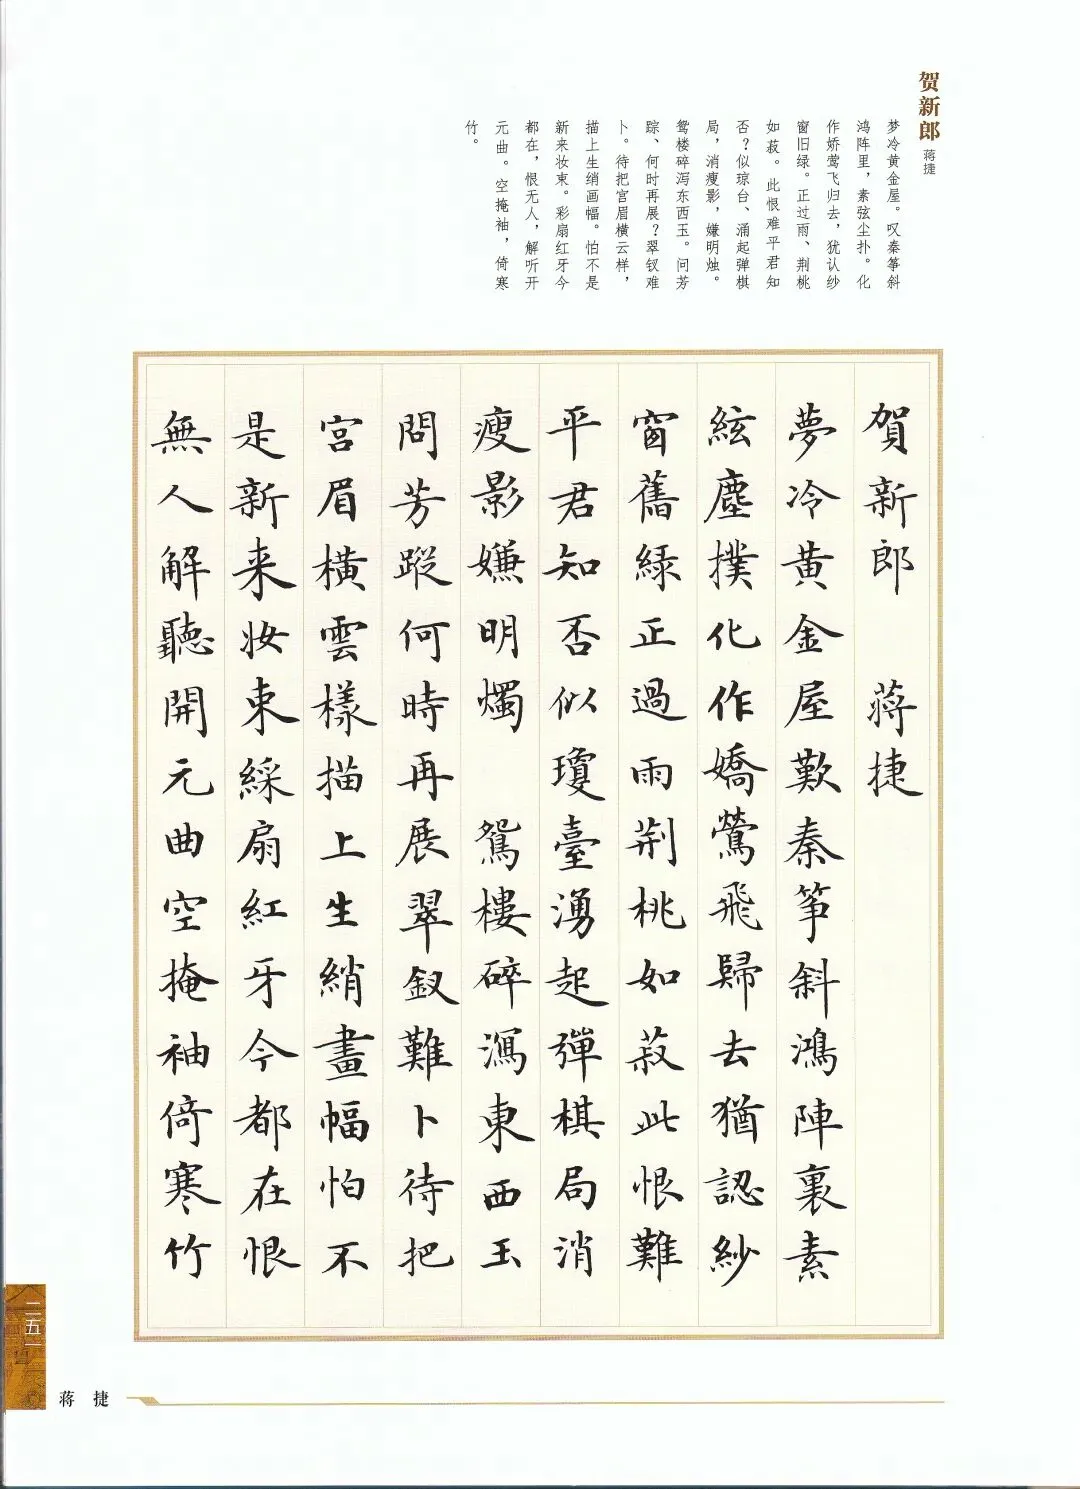 贺新郎 蒋捷
梦冷黄金屋。叹秦筝斜
鸿阵里，素弦尘扑。化
作娇莺飞归去，犹认纱
窗旧绿。正过雨、荆桃
如菽。此恨难平君知
否？似琼台、涌起弹棋
局，消瘦影，嫌明烛。
鸳楼碎泻东西玉。问芳
踪、何时再展？翠钗难
卜。待把宫眉横云样，
描上生绡画幅。怕不是
新来妆束。彩扇红牙今
都在，恨无人，解听开
元曲。空掩袖，倚寒
竹。
賀新郎 蔣捷
夢冷黄金屋歎秦筝斜鴻陣裏素
絃塵撲化作嬌鶯飛歸去猶認紗
窗舊緑正過雨荆桃如菽此恨難
平君知否似瓊臺湧起彈棋局消
瘦影嫌明燭 鴛樓碎瀉東西玉
問芳蹤何時再展翠釵難卜待把
宮眉橫雲樣描上生綃畫幅怕不
是新来妝束綵扇紅牙今都在恨
無人解聽開元曲空掩袖倚寒竹
二五一
蒋捷